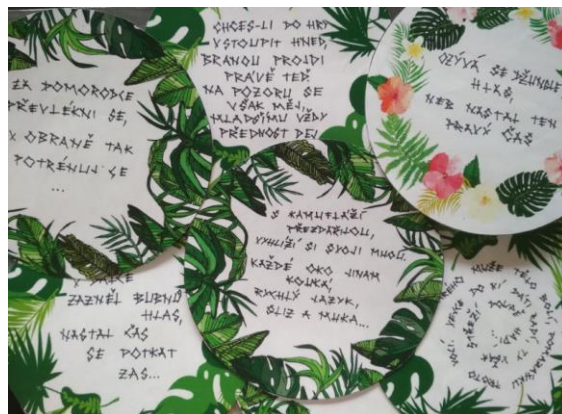 ZA DOMORODCE
PŘEVLÉKNI SE,
K OBRANĚ TAK
POTRÉNUJ SE
...
CHCEŠ-LI DO HRY
VSTOUPIT HNED,
BRANOU PROJDI
PRÁVĚ TEĎ
NA POZORU SE
VŠAK MĚJ,
MLADŠÍMU VŽDY
PŘEDNOST DEJ
OZÝVÁ SE DŽUNGLE
HLAS,
NEB NASTAL TEN
PRAVÝ ČAS
S KAMUFLÁŽÍ
PŘEZDÁRNOU,
VYHLÍŽÍ SI SVOJI
KAŽDÉ OKO JINAM
KOUKÁ,
RYCHLÝ JAZYK,
SLIZ A MUKA...
ZAZNĚL BUBNŮ
HLAS,
NASTAL ČAS
SE POTKAT
ZAS...
MŮŽE TĚLO